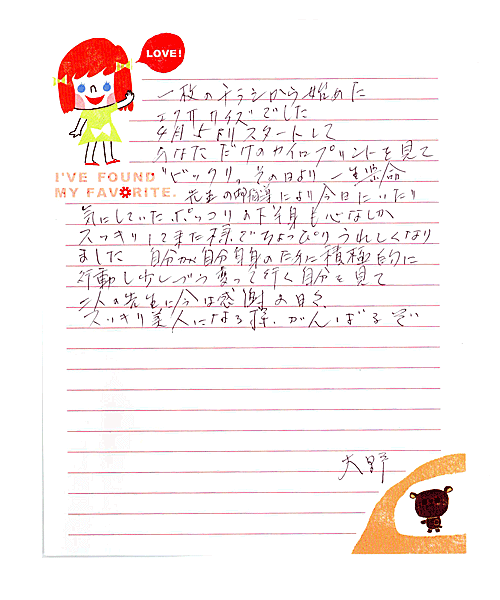 LOVE!
一枚のチラシから始めた
エクササイズでした
4月5日よりスタートして
あなただけのカイロプリントを見て
I'VE FOUND
MY FAVORITE.
"ビックリ"。その日より一生懸命
先生の御指導により今日にいたり
気にしていたポッコリの下半身も心なしか
スッキリして来た様でちょっぴりうれしくなり
ました 自分が自分自身のために積極的に
行動し少しづつ変って行く自分を見て
二人の先生に今は感謝の日々
スッキリ美人になる様、がんばるぞ
大野